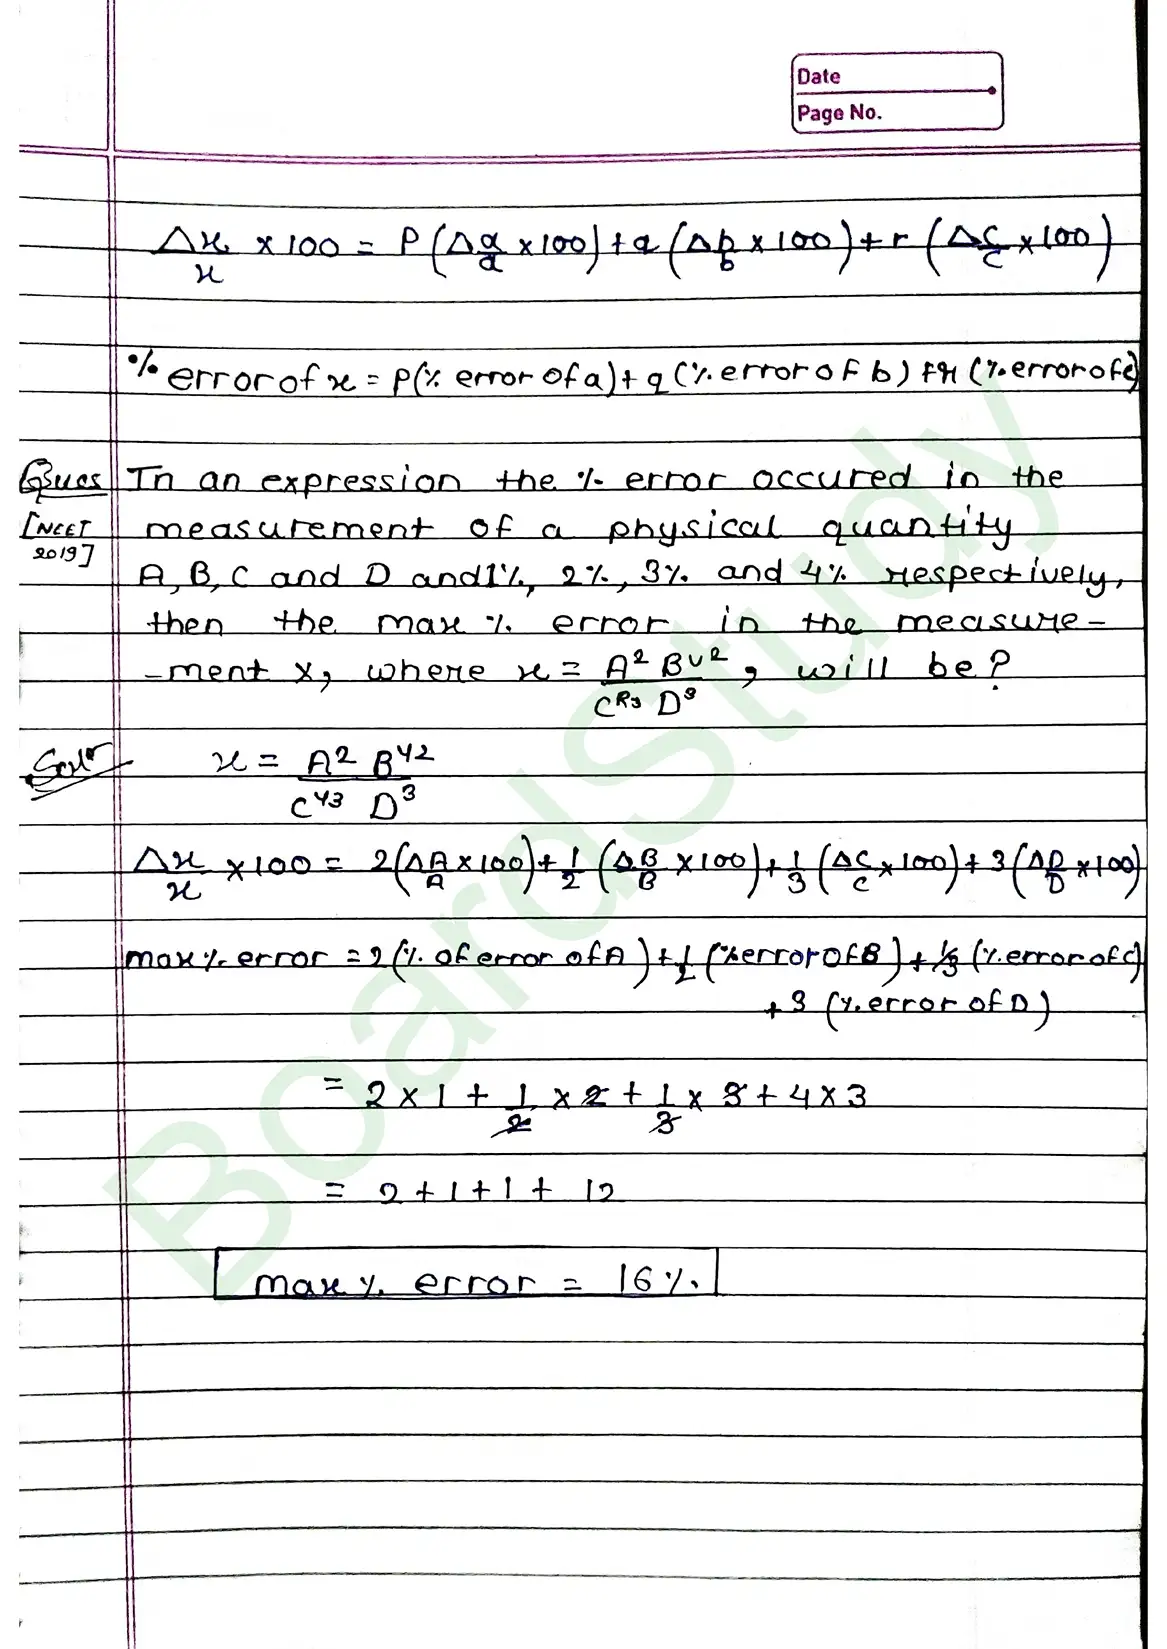 Date
Page No.
Δx/x × 100 = P(Δa/a × 100) + q(Δb/b × 100) + r(Δc/c × 100)
% error of x = P(% error of a) + q(% error of b) + r(% error of c)
Ques In an expression the % error occured in the
[NEET 2019] measurement of a physical quantity
A, B, C and D and 1%, 2%, 3% and 4% respectively,
then the max % error in the measure-
-ment x, where x = A² B^1/2 / C^1/3 D³, will be?
Solⁿ x = A² B^1/2 / C^1/3 D³
Δx/x × 100 = 2(ΔA/A × 100) + 1/2 (ΔB/B × 100) + 1/3 (ΔC/C × 100) + 3(ΔD/D × 100)
max % error = 2(% of error of A) + 1/2 (% error of B) + 1/3 (% error of C)
+ 3 (% error of D)
= 2 × 1 + 1/2 × 2 + 1/3 × 3 + 4 × 3
= 2 + 1 + 1 + 12
max % error = 16%.
BoardStudy